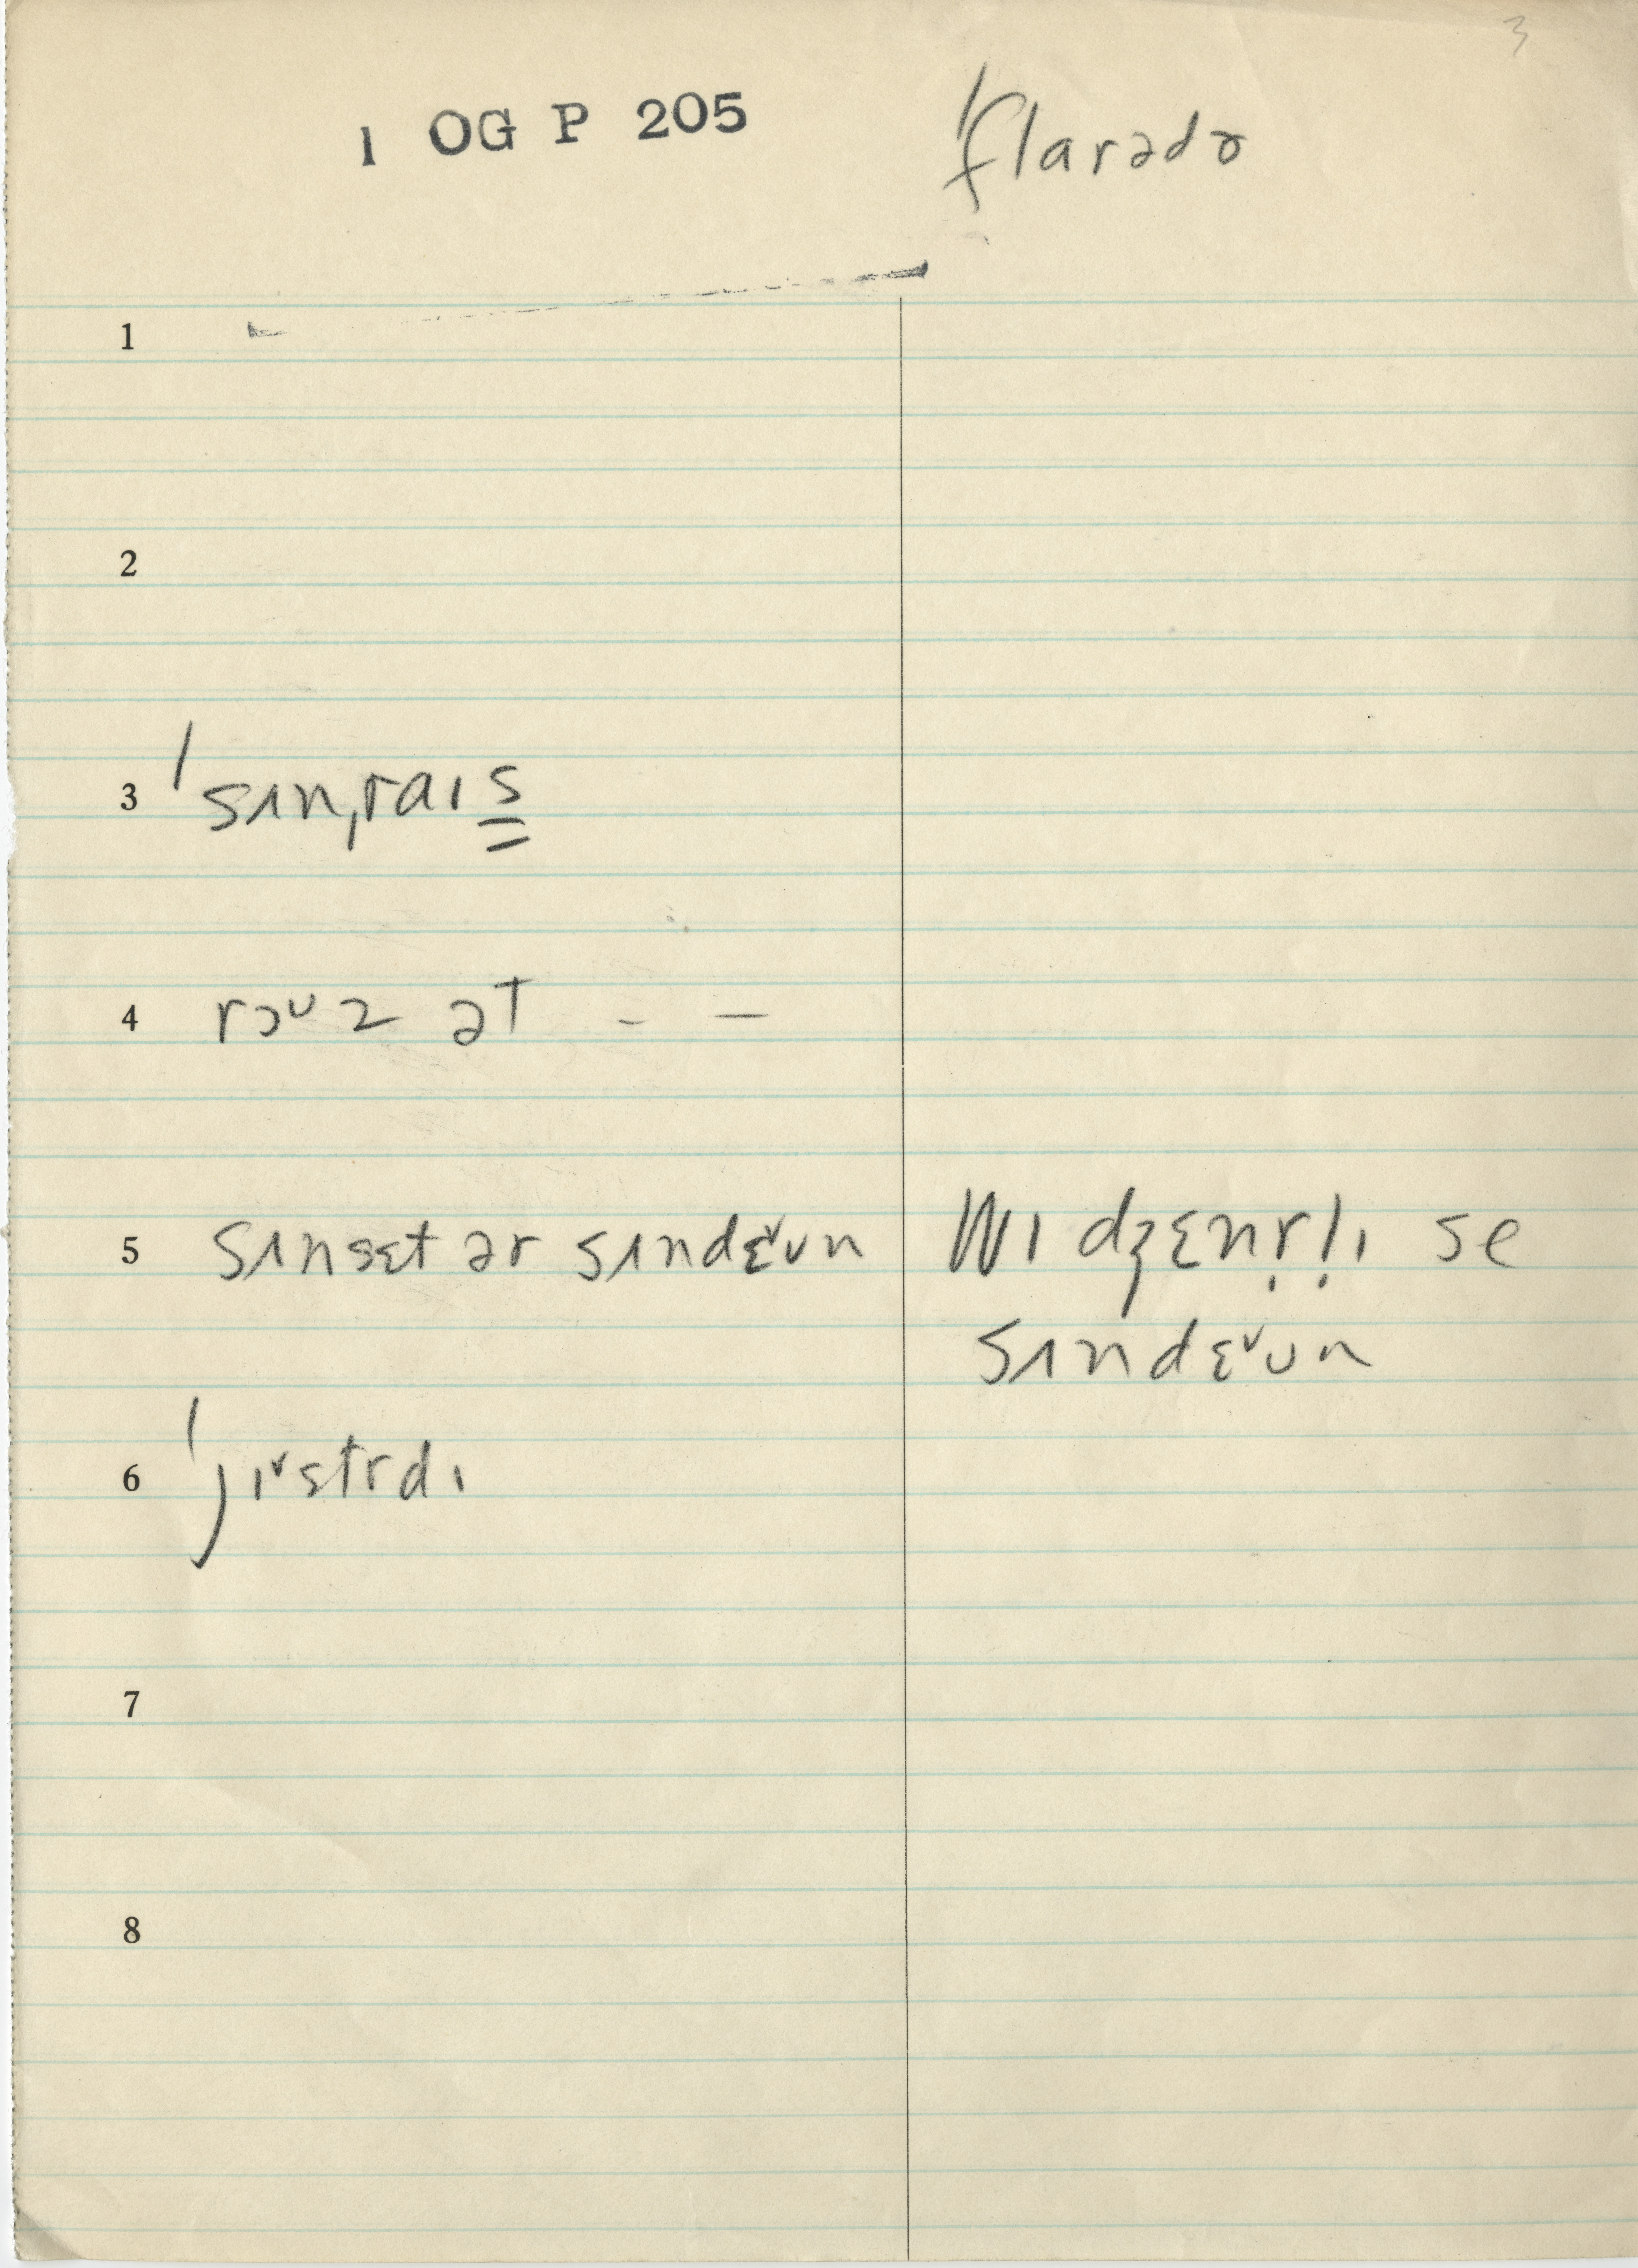 3
1 OG P 205 ˈflarədɚ
1
2
3 ˈsʌnˌraɪs̳
4 rɔᴜz ət - –
5 sʌnsɛt ər sʌndɛ˅ʊn wɪ dʒɛnr̩l̩ɪ se
sʌndɛ˅ʊn
6 ˈjɪ˅strdɪ
7
8